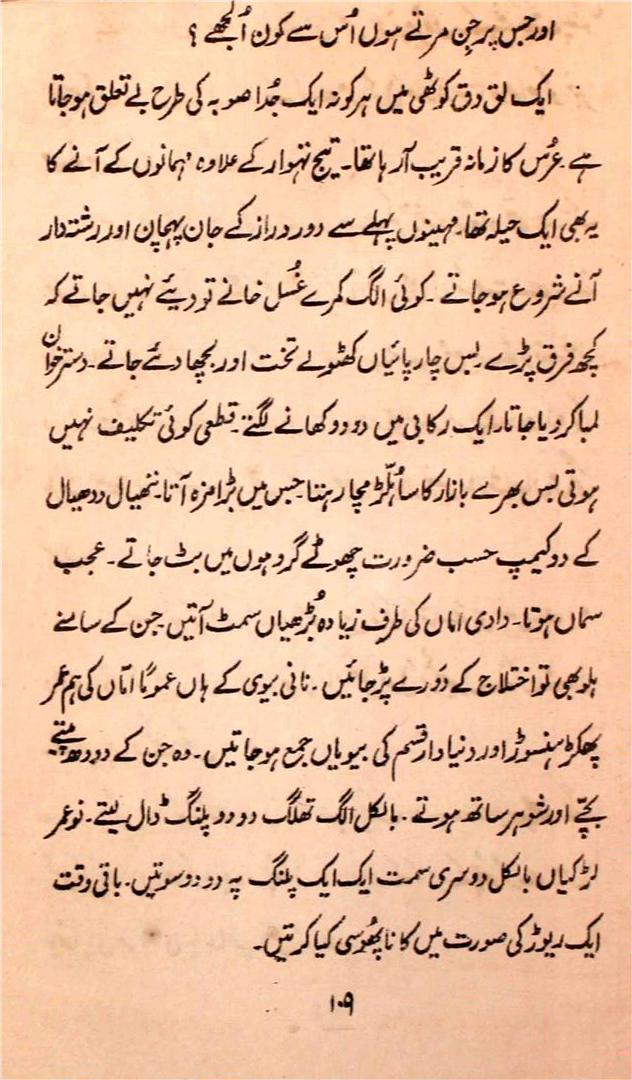 اور جس پر جن مرتے ہوں اُس سے کون اُلجھے ؟
ایک لق دق کوٹھی میں ہر کونہ ایک جُدا صوبہ کی طرح بے تعلق ہو جاتا
ہے عُرس کا زمانہ قریب آ رہا تھا۔ تیج تہوار کے علاوہ مہمانوں کے آنے کا
یہ بھی ایک حیلہ تھا۔ مہینوں پہلے سے دور دراز کے جان پہچان اور رشتہ دار
آنے شروع ہو جاتے ۔ کوئی الگ کمرے غُسل خانے تو دیئے نہیں جاتے کہ
کچھ فرق پڑے۔ بس چار پائیاں کھٹولے تخت اور بچھا دئے جاتے۔ دسترخوان
لمبا کر دیا جاتا، ایک رکابی میں دو دو کھانے لگتے۔ قطعی کوئی تکلیف نہیں
ہوتی بس بھرے بازار کا سا ہُلڑ مچا رہتا۔ جس میں بڑا مزہ آتا۔ ننھیال ددھیال
کے دو کیمپ حسب ضرورت چھوٹے گروہوں میں بٹ جاتے ۔ عجب
سماں ہوتا۔ دادی اماں کی طرف زیادہ بُڑھیاں سمٹ آتیں جن کے سامنے
ہلو بھی تو اختلاج کے دَورے پڑ جائیں ۔ نانی بیوی کے ہاں عموماً امّاں کی ہم عمر
پھکڑ ہنسوڑ اور دنیا دار قسم کی بیویاں جمع ہو جاتیں۔ وہ جن کے دودھ پیتے
بچّے اور شوہر ساتھ ہوتے ۔ بالکل الگ تھلگ دو دو پلنگ ڈال لیتے۔ نوعمر
لڑکیاں بالکل دوسری سمت ایک ایک پلنگ پہ دو دو سوتیں۔ باقی وقت
ایک ریوڑ کی صورت میں کانا پھُوسی کیا کرتیں۔
۱۰۹